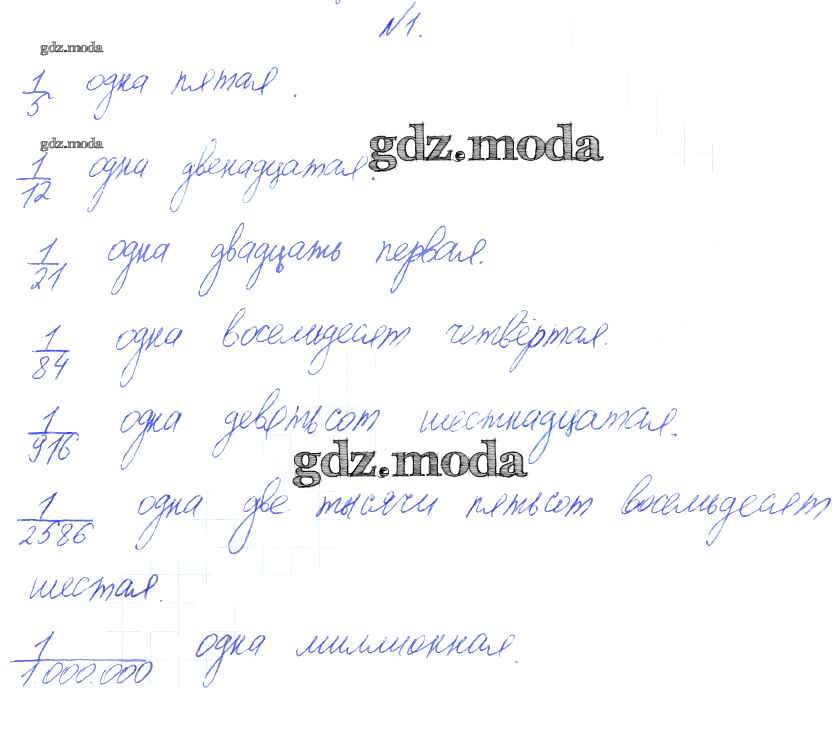 №1.
gdz.moda
1/5 одна пятая.
gdz.moda
gdz.moda
1/12 одна двенадцатая.
1/21 одна двадцать первая.
1/84 одна восемьдесят четвёртая.
1/916 одна девятьсот шестнадцатая.
gdz.moda
1/2586 одна две тысячи пятьсот восемьдесят
шестая.
1/1000.000 одна миллионная.